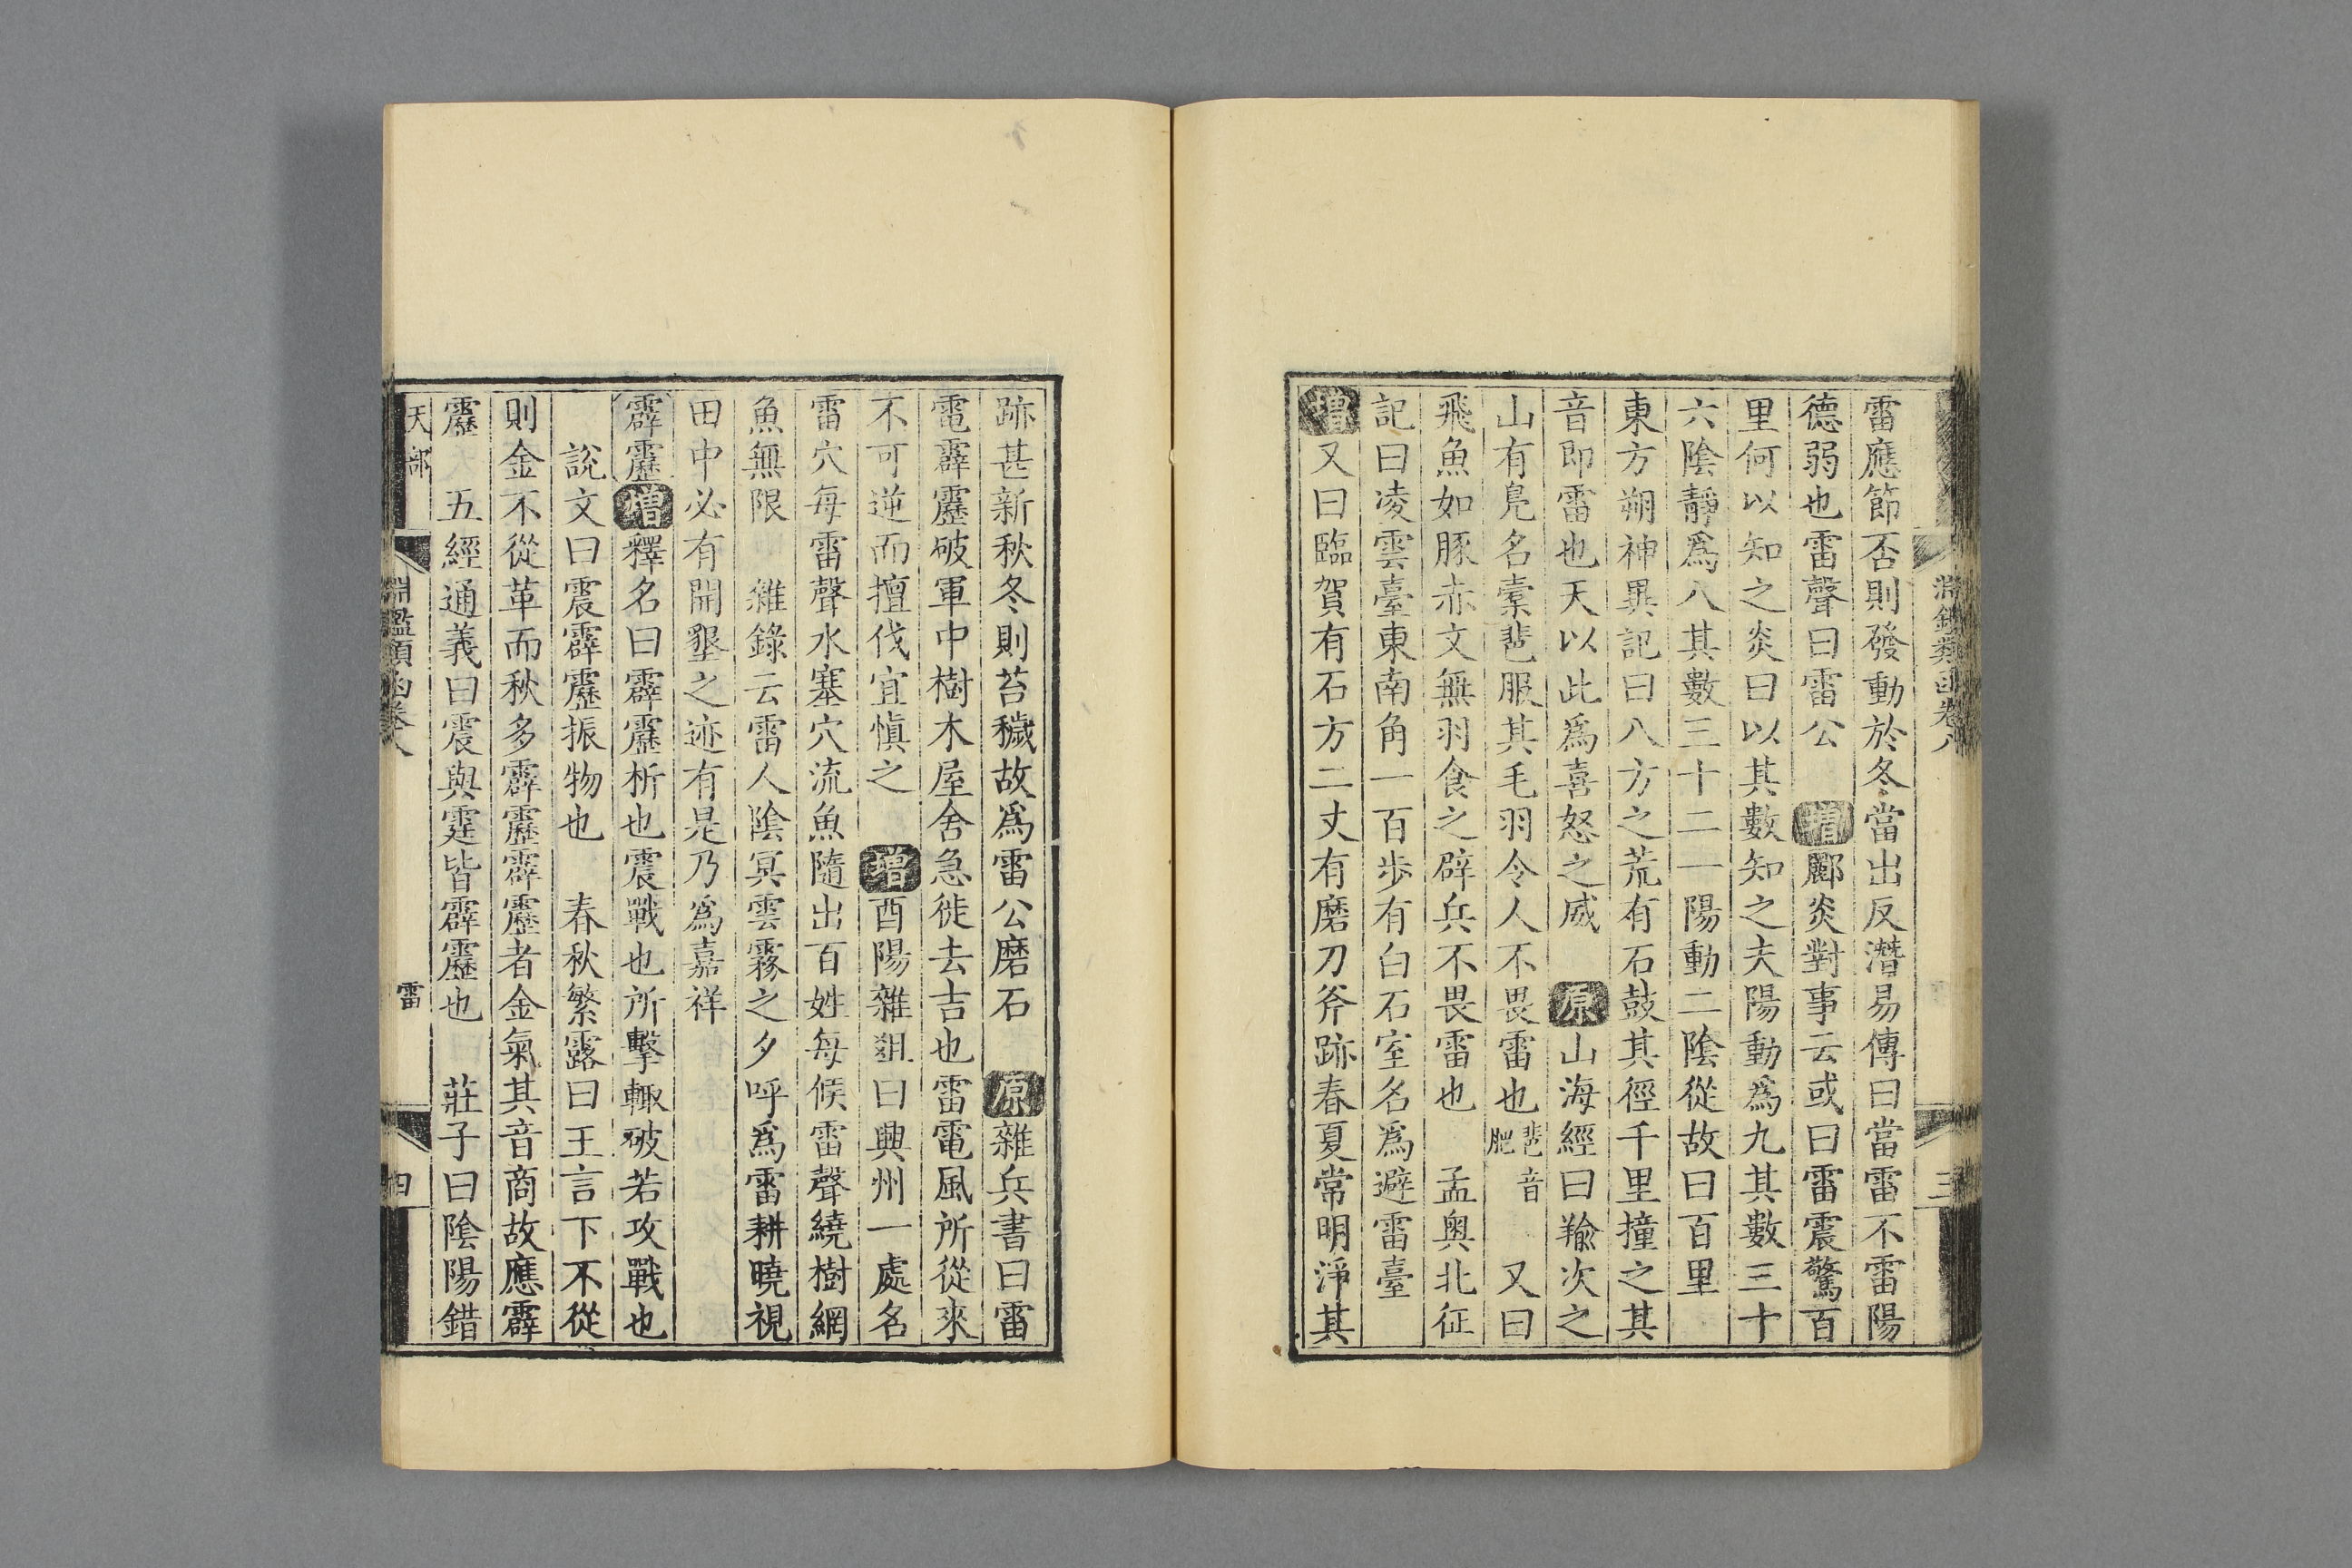 淵鑑類函卷八
三
雷應節否則發動於冬當出反潛易傳曰當雷不雷陽
德弱也雷聲曰雷公 增酈炎對事云或曰雷震驚百
里何以知之炎曰以其數知之夫陽動爲九其數三十
六陰靜爲八其數三十二一陽動二陰從故曰百里
東方朔神異記曰八方之荒有石鼓其徑千里撞之其
音即雷也天以此爲喜怒之威 原山海經曰羭次之
山有鳧名橐𩇯服其毛羽令人不畏雷也𩇯音肥 又曰
飛魚如豚赤文無羽食之辟兵不畏雷也 孟奧北征
記曰凌雲臺東南角一百步有白石室名爲避雷臺
增又曰臨賀有石方二丈有磨刀斧跡春夏常明淨其
跡甚新秋冬則苔穢故爲雷公磨石 原雜兵書曰雷
電霹靂破軍中樹木屋舍急徙去吉也雷電風所從來
不可逆而擅伐宜愼之 增酉陽雜俎曰興州一處名
雷穴每雷聲水塞穴流魚隨出百姓每候雷聲繞樹網
魚無限 雜錄云雷人陰冥雲霧之夕呼爲雷耕曉視
田中必有開墾之迹有是乃爲嘉祥
霹靂增釋名曰霹靂析也震戰也所擊輒破若攻戰也
說文曰震霹靂振物也 春秋繁露曰王言下不從
則金不從革而秋多霹靂霹靂者金氣其音商故應霹
靂 五經通義曰震與霆皆霹靂也 莊子曰陰陽錯
天部
淵鑑類函卷八
雷
四